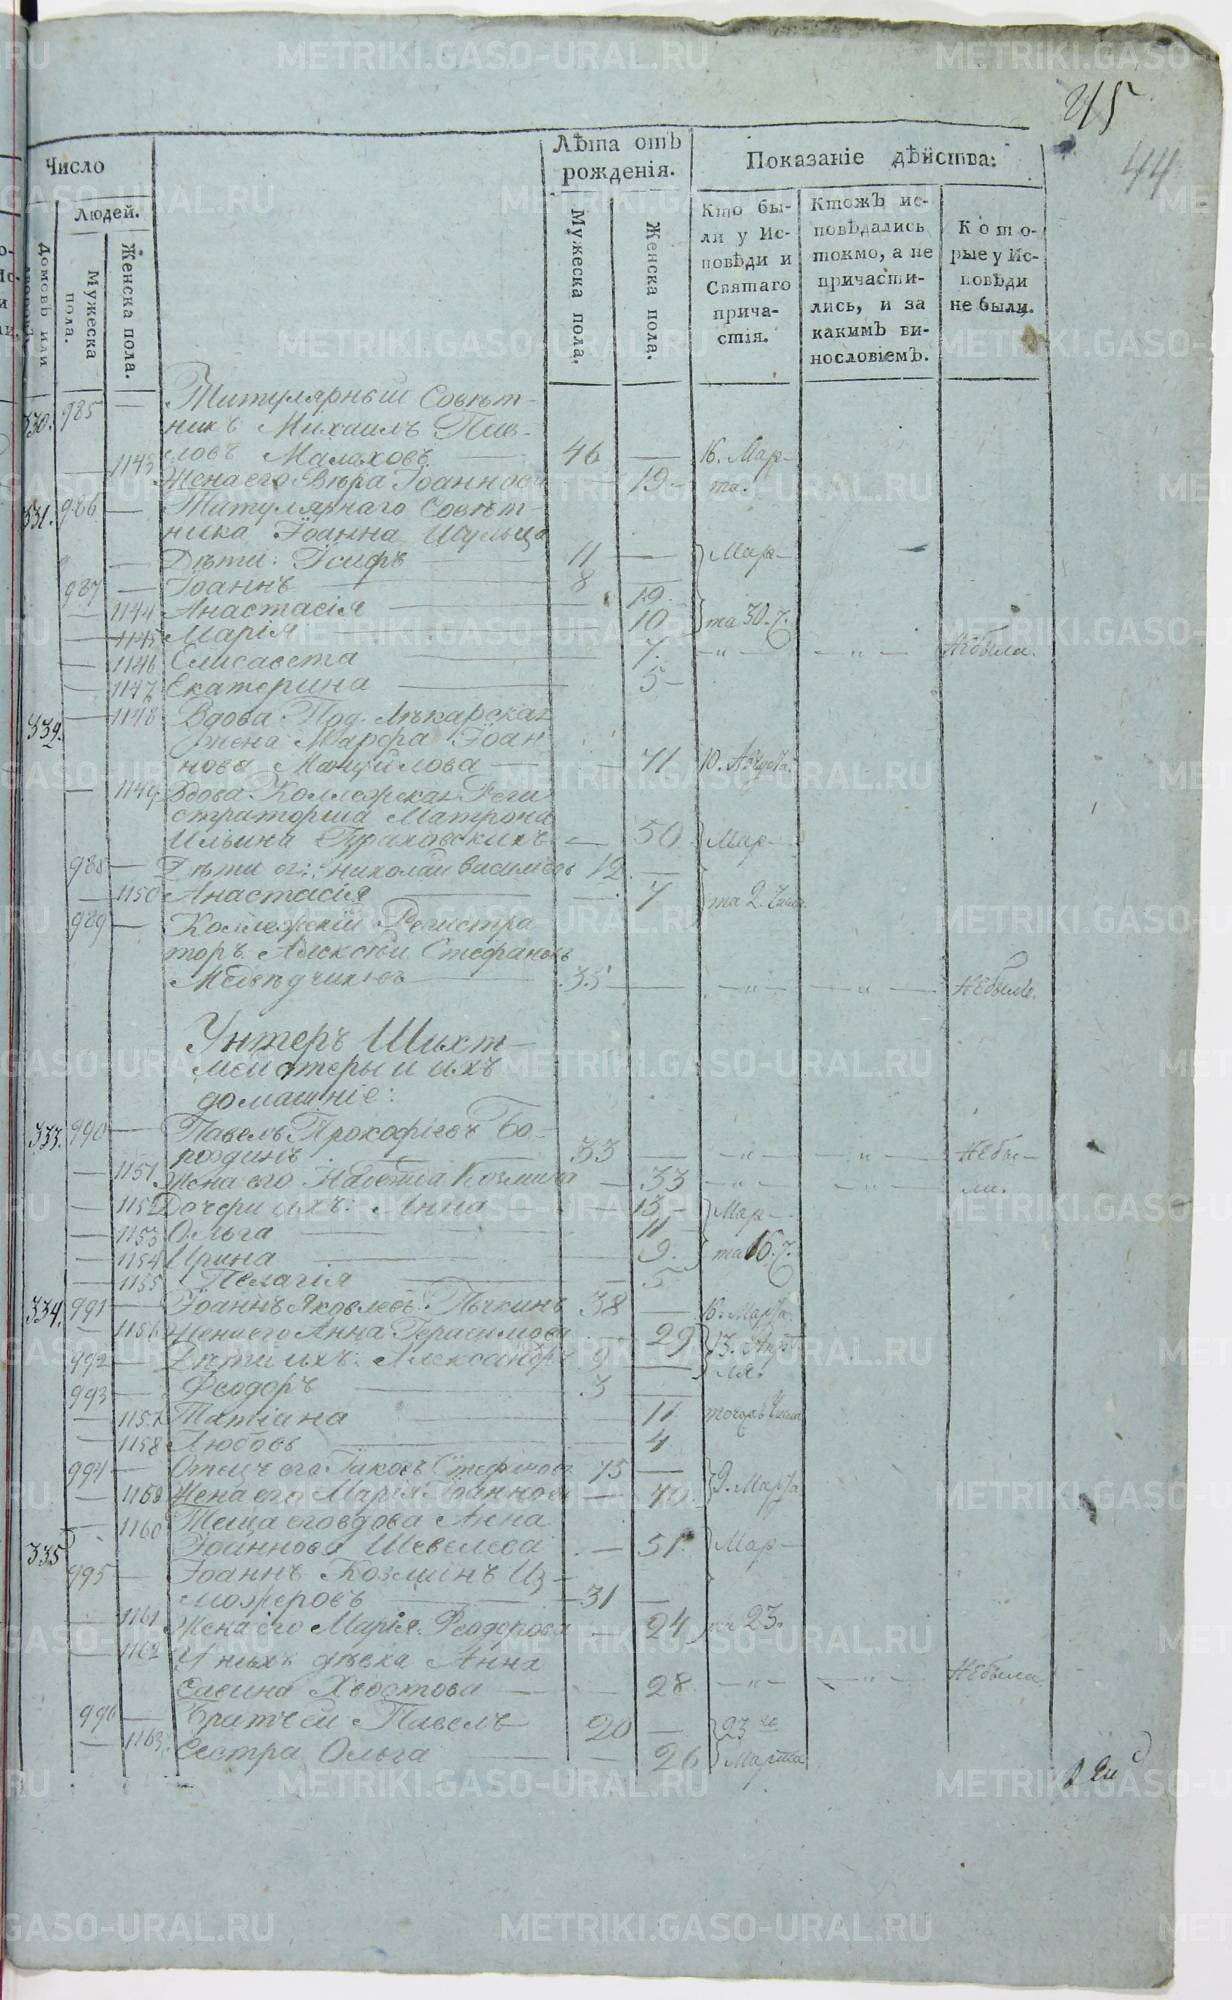 METRIKI.GASO-URAL.RU
45
44
Число
Лѣта отъ рожденія.
Показаніе дѣйства:
Людей.
Домовъ или
Мужеска пола.
Женска пола.
Мужеска пола.
Женска пола.
Кто бы-
ли у Ис-
повѣди и
Святаго
прича-
стія.
Ктожъ ис-
повѣдались
токмо, а не
причасти-
лись, и за
какимъ ви-
нословіемъ.
Кото-
рые у Ис-
повѣди
не были.
330. 985 — Титулярный Совѣт-
никъ Михаилъ Пав-
ловъ Малаховъ — 46 — 16. Мар-
— 1143 Жена его Вѣра Іоаннова — 19 - та.
331. 986 — Титулярнаго Совѣт-
ника Іоанна Шульца
— Дѣти: Осифъ — 11 — Мар-
987 — Іоаннъ — 8 —
— 1144 Анастасія — 19
— 1145 Марія — 10 та 30. ч.
— 1146 Елисавета — 7. — „ — — „ — Не была.
— 1147 Екатерина — 5 -
332. — 1148 Вдова Под. Лѣкарская
Жена Марфа Іоан
нова Мануйлова — 71 10. Августа.
— 1149 Вдова Коллежская Реги
страторша Матрона
Ильина — 50 Мар-
988 — Дѣти ея: Николай Васильевъ 12 —
— 1150 Анастасія — 7 та 2. Числа
989 — Коллежскій Регистра
торъ Алексѣй Стефановъ
35 — — „ — — „ — Не былъ.
Унтеръ Шихт-
мейстеры и ихъ
домашніе:
333. 990 — Павелъ Прокофіевъ Бо-
роздинъ 33 — — „ — — „ — Не бы-
— 1151 Жена его Козмина — 33 — „ — — „ — ли.
— 1152 Дочери ихъ: Анна — 13 - Мар-
— 1153 Ольга — 11
— 1154 Ирина — 9. та 16. ч.
— 1155 Пелагія — 5
334. 991 — Іоаннъ Яковлевъ Пычкинъ 38 — 16. Марта
— 1156 Жена его Анна Герасимова — 29 13. Апрѣ
992 — Дѣти ихъ: Александръ 9 — ля.
993 — Феодоръ — 3 —
— 1157 Татіана — 11 тогожъ Числа
— 1158 Любовь — 4
994 — Отецъ его Іаковъ Стефановъ 75 — 9. Марта
— Жена его Марія Іоаннова — 70
— 1160 Теща его вдова Анна
Іоаннова Шевелева — 51. Мар-
335 995 — Іоаннъ Козминъ Из
можеровъ — 31 —
— 1161 Жена его Марія Феодорова — 24 та 23.
— 1162 У нихъ дѣвка Анна
Савина Хвостова — 28 — „ — — „ — Не была
996 — Братъ ей Павелъ 20 — 23 го
— 1163 Сестра Ольга — 26 Марта